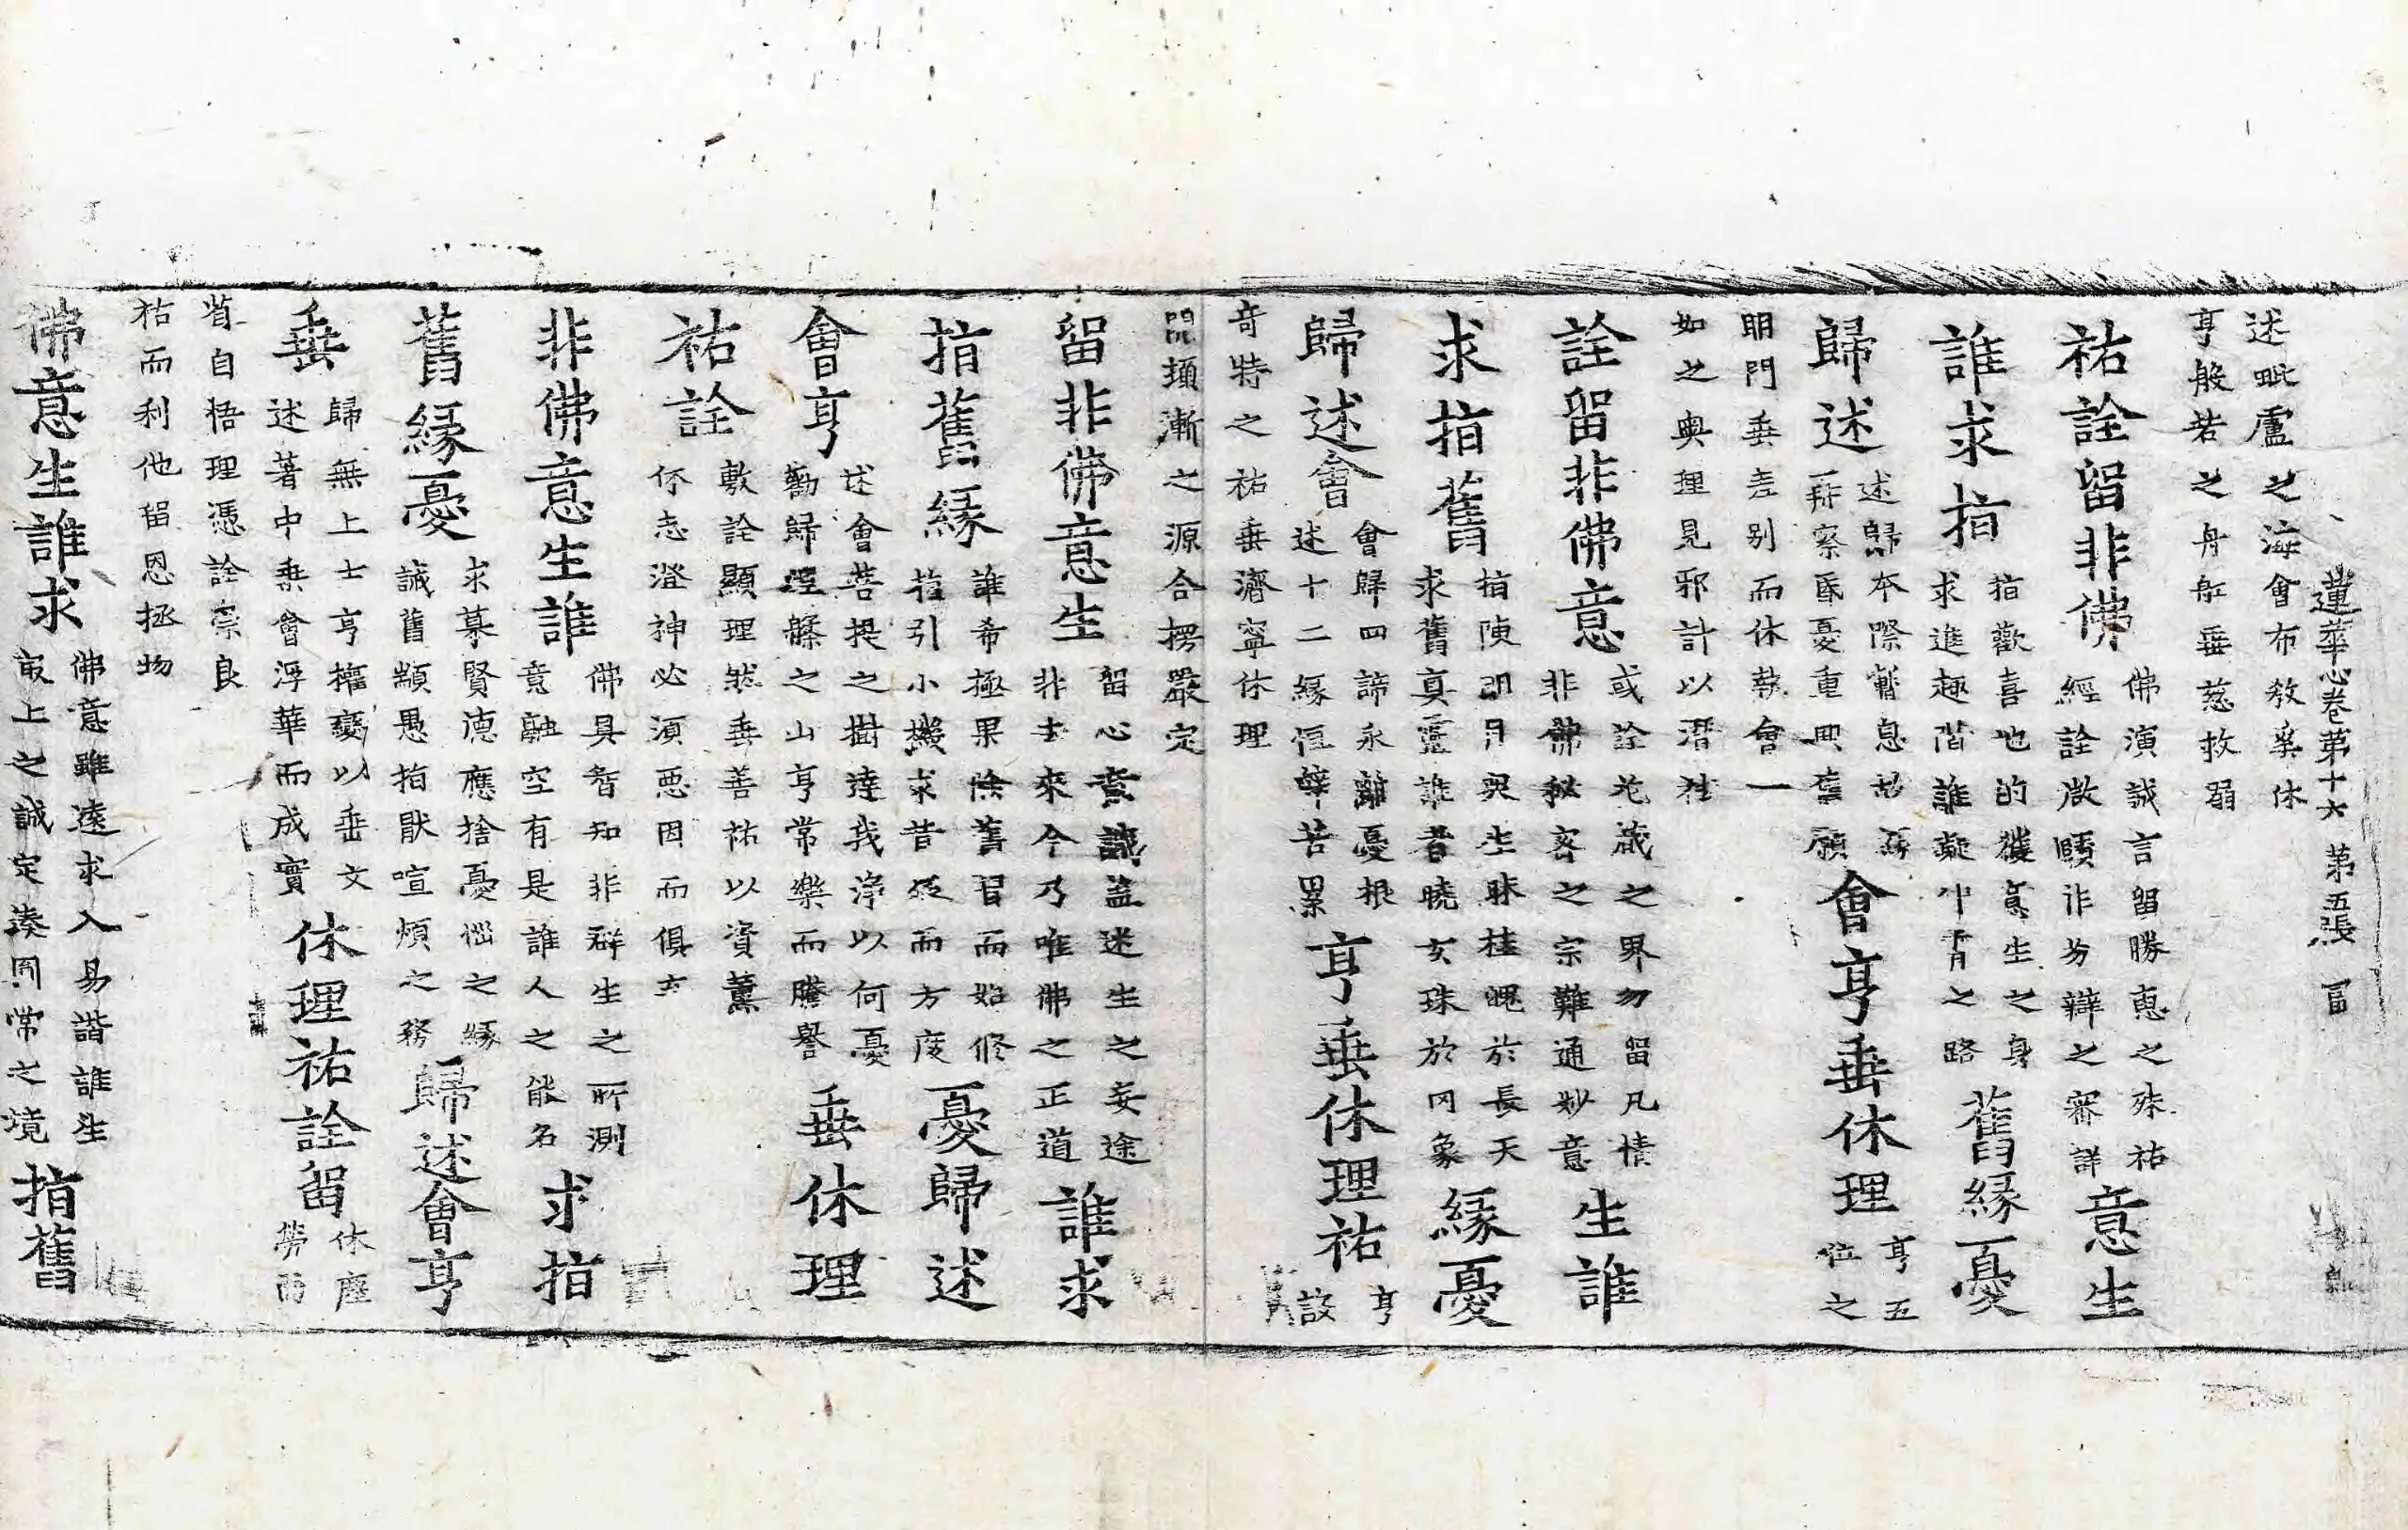 蓮華心卷第十六 第五張
述毗盧之海會布教奚休
亨般若之舟舩垂慈救弱
祐詮留非佛
佛演誠言留勝惠之殊祐
經詮微賾非易辯之審詳
意生
誰求指
指歡喜地的獲意生之身
求進趣階誰凝之路
舊緣憂
歸述
述歸本際暫息
察憂重興舊願
會亨垂休理
亨五
位之
明門垂差別而休執會一
如之奧理見邪計以潛
詮留非佛意
或詮花藏之界勿留凡情
非佛秘密之宗難通妙意
生誰
求指舊
指陳明月與生昧桂魄於長天
求舊真靈誰者曉玄珠於罔象
緣憂
歸述會
會歸四諦永離憂根
述十二緣恒辭苦累
亨垂休理祐
亨
設
奇特之祐垂濟寧休理
頓漸之源合楞嚴定
留非佛意生
留心意識盖迷生之妄途
非去來今乃唯佛之正道
誰求
指舊緣
誰希極果除舊習而始修
指引小機求昔緣而方度
憂歸述
會亨
述會菩提之樹達我淨以何憂
勸歸涅槃之山亨常樂而騰譽
垂休理
祐詮
敷詮顯理然垂善祐以資薰
休志澄神必須惡因而俱
非佛意生誰
佛具智知非群生之所測
意融空有是誰人之能名
求指
舊緣憂
求慕賢德應捨憂惱之緣
誠舊顓愚指厭喧煩之務
歸述會亨
垂
歸無上士亨權變以垂文
述著中乘會浮華而成實
休理祐詮留
休塵
勞而
自悟理憑詮宗良
祐而利他留恩拯物
佛意生誰求
佛意雖遠求入易諧誰生
最上之誠定湊同常之境
指舊